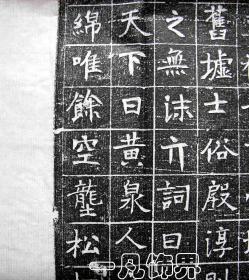 舊墟士俗殷淳
之無沫亣詞曰
天下曰黃泉人
綿唯餘空壟松
一凡饰界